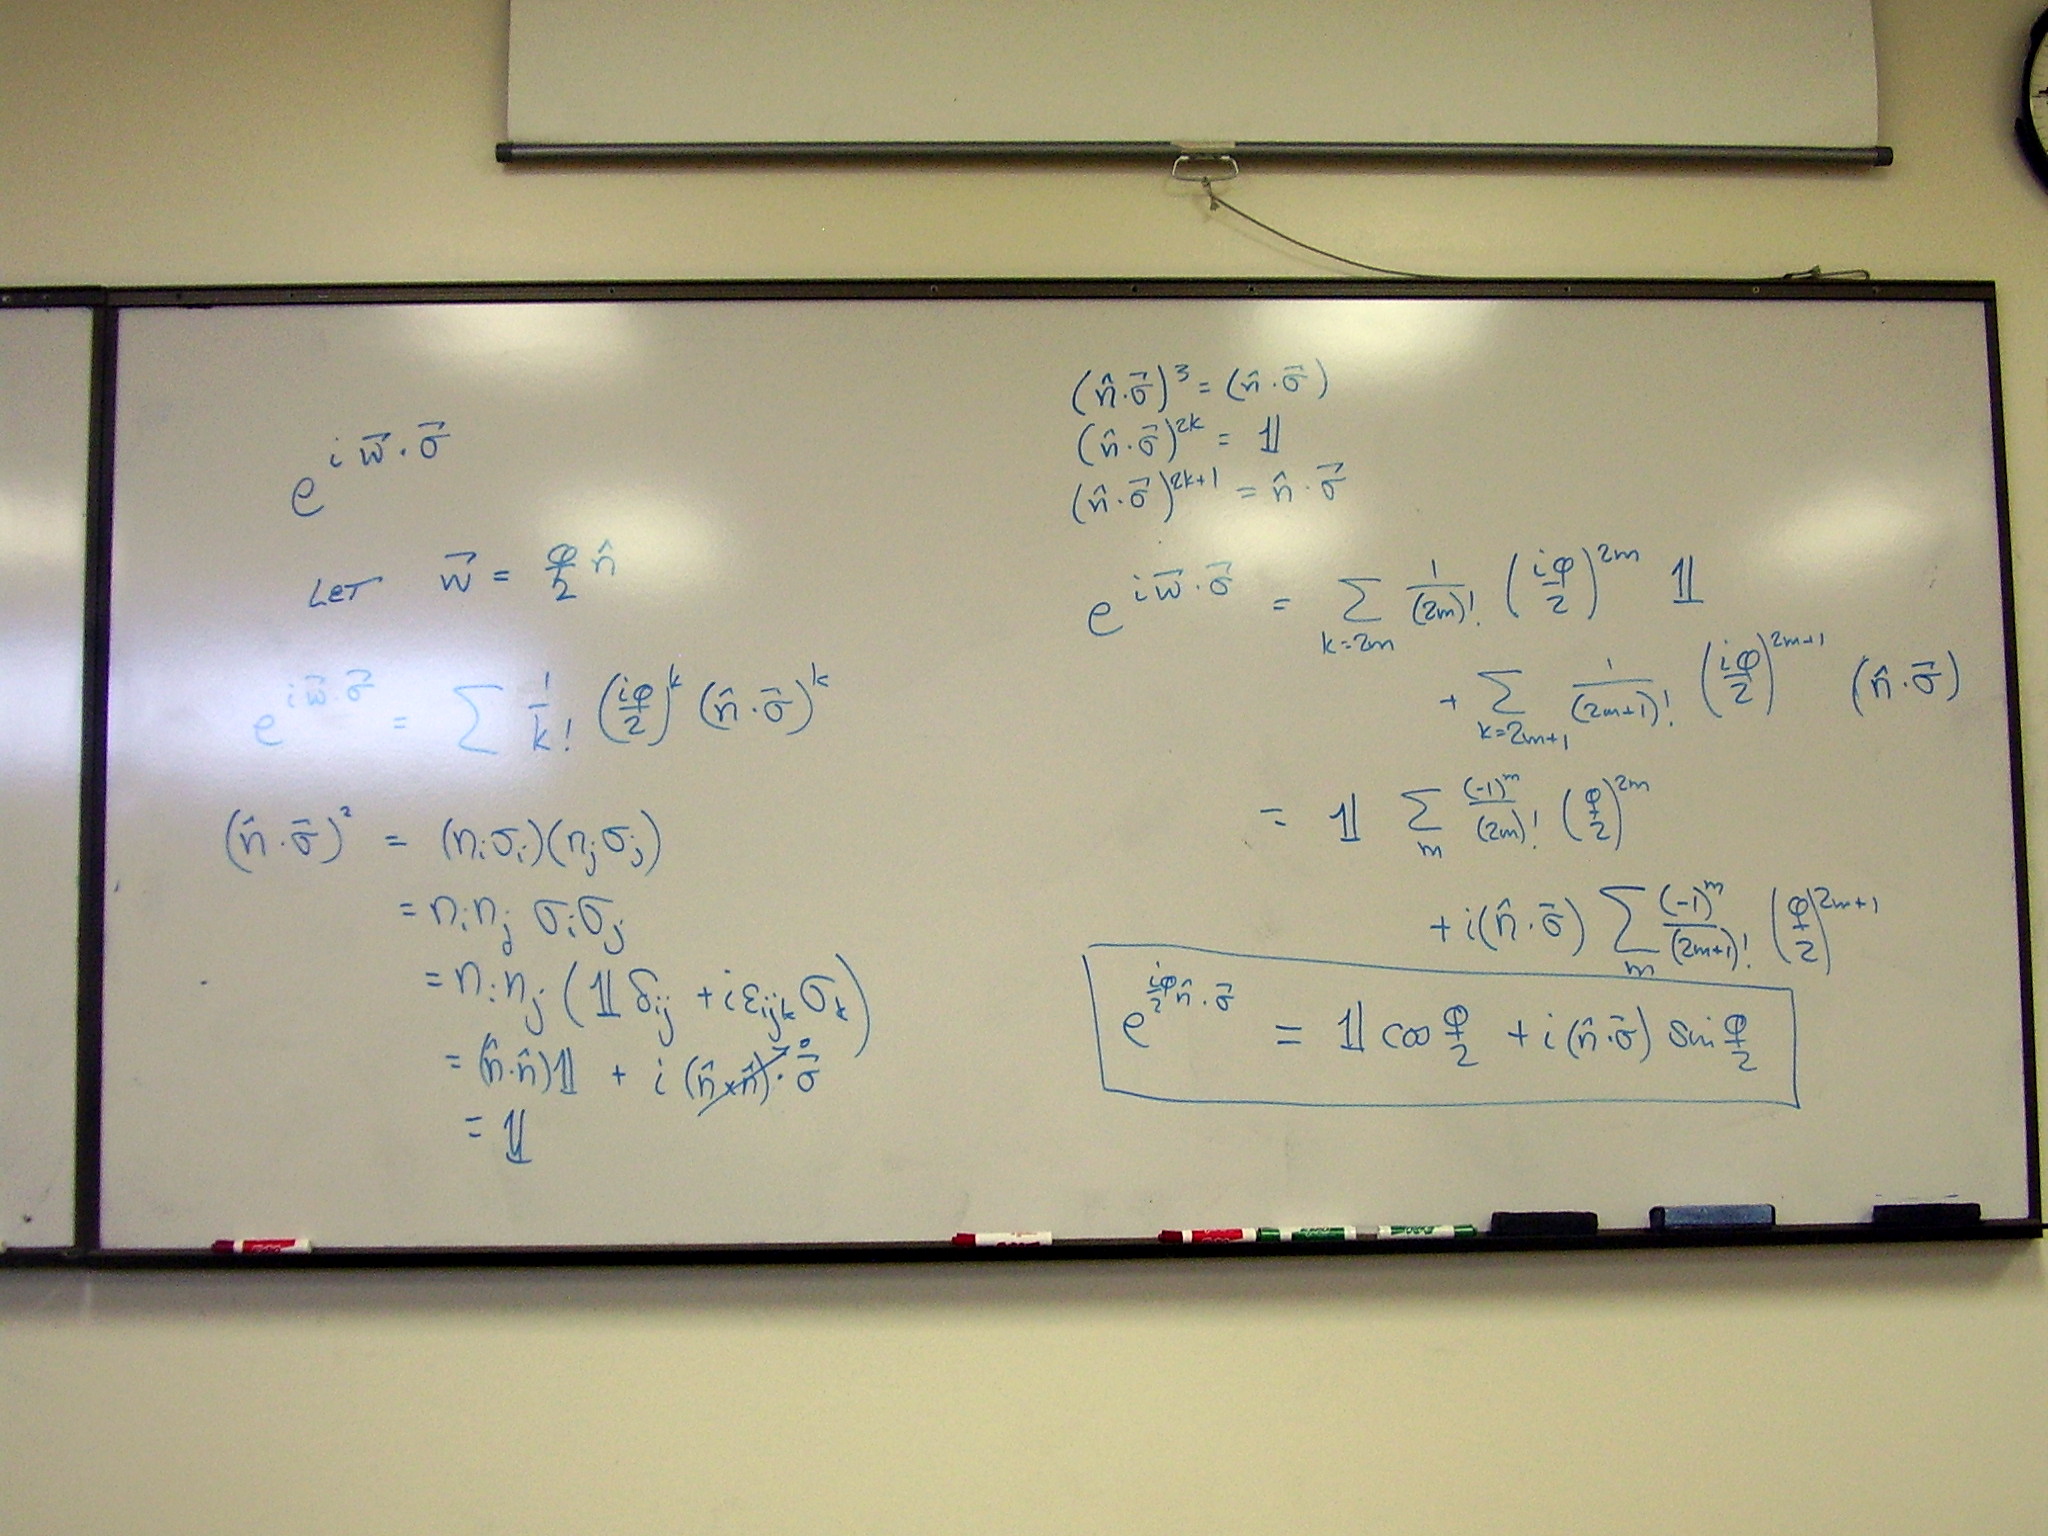 e^{i w⃗·σ⃗}
LET w⃗ = φ/2 n̂
e^{i w⃗·σ⃗} = ∑ 1/k! (iφ/2)^k (n̂·σ⃗)^k
(n̂·σ⃗)² = (n_i σ_i)(n_j σ_j)
= n_i n_j σ_i σ_j
= n_i n_j (𝟙 δ_ij + i ε_ijk σ_k)
= (n̂·n̂)𝟙 + i (n̂×n̂)·σ⃗ 0
= 𝟙
(n̂·σ⃗)³ = (n̂·σ⃗)
(n̂·σ⃗)^{2k} = 𝟙
(n̂·σ⃗)^{2k+1} = n̂·σ⃗
e^{i w⃗·σ⃗} = ∑_{k=2m} 1/(2m)! (iφ/2)^{2m} 𝟙
+ ∑_{k=2m+1} 1/(2m+1)! (iφ/2)^{2m+1} (n̂·σ⃗)
= 𝟙 ∑_m (-1)^m/(2m)! (φ/2)^{2m}
+ i(n̂·σ⃗) ∑_m (-1)^m/(2m+1)! (φ/2)^{2m+1}
e^{iφ/2 n̂·σ⃗} = 𝟙 cos φ/2 + i(n̂·σ⃗) sin φ/2